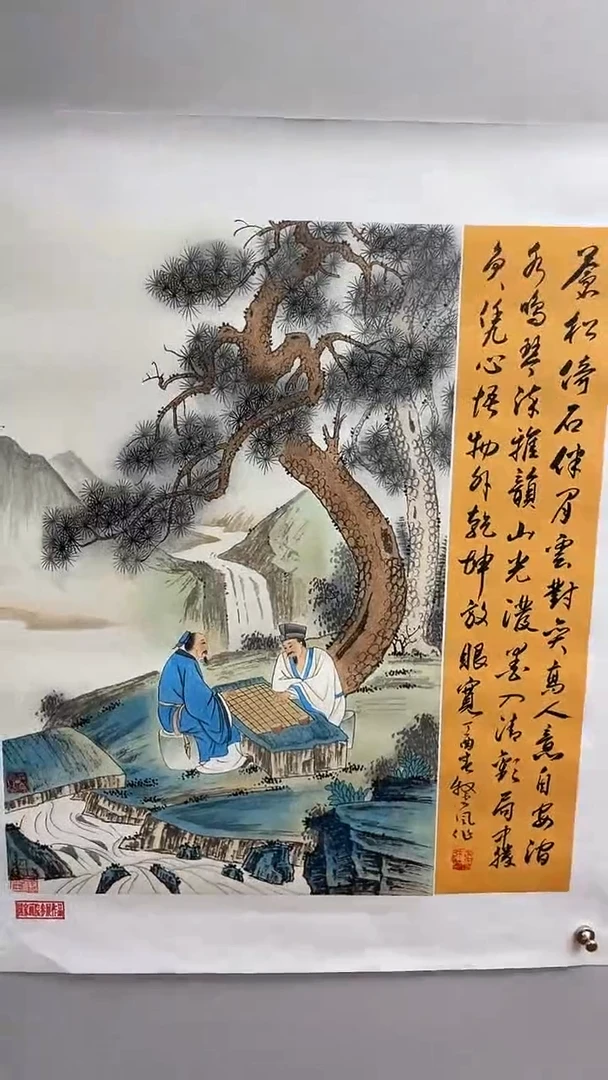 蒼松倚石伴閒雲對弈高人意自安澗
水鳴琴添雅韻山光潑墨入清歡局中勝
負憑心悟物外乾坤放眼寬丁酉春風作